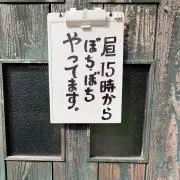 昼15時から
ぼちぼち
やってます。